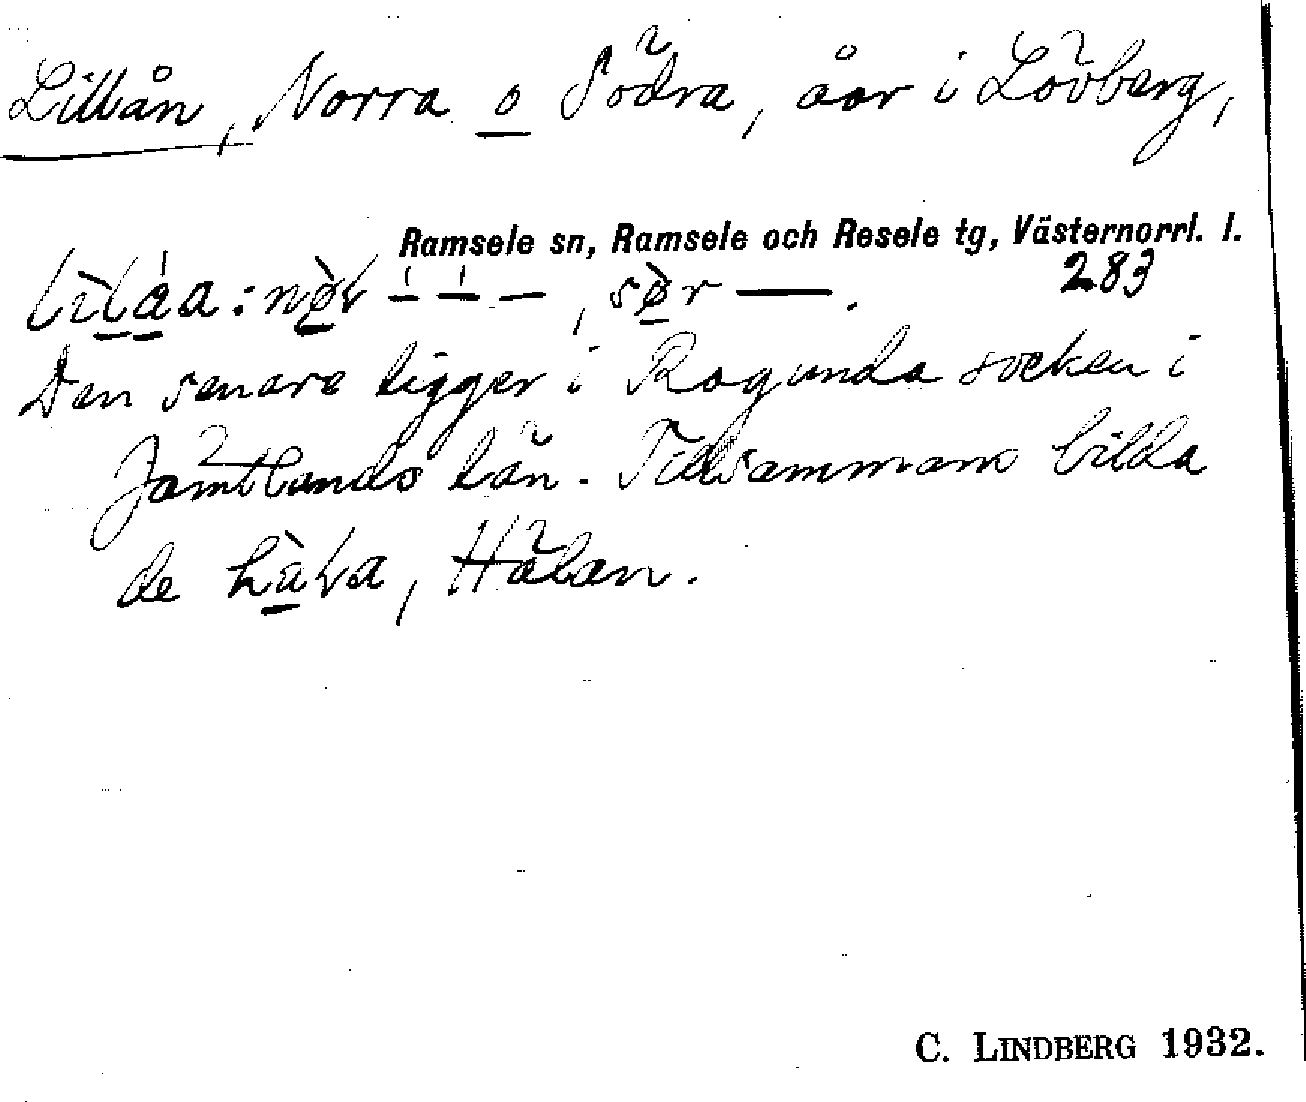 Lillån, Norra o Södra, åar i Lövberg,
Ramsele sn, Ramsele och Resele tg, Västernorrl. l.
283
Den senare ligger i Ragunda socken i
Jämtlands län. Tillsammans bilda
de , Hålån.
C. LINDBERG 1932.